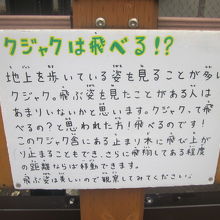 クジャクは飛べる!?
地上を歩いている姿を見ることが多い
クジャク。飛ぶ姿を見たことがある人は
あまりいないかと思います。クジャクって飛
べるの？と思われた方！飛べるのです！
このクジャク舎にある止まり木に飛び上が
り止まることもでき、さらに飛翔してある程度
の距離ならば移動できます。
飛ぶ姿は美しいので観察してみてください。